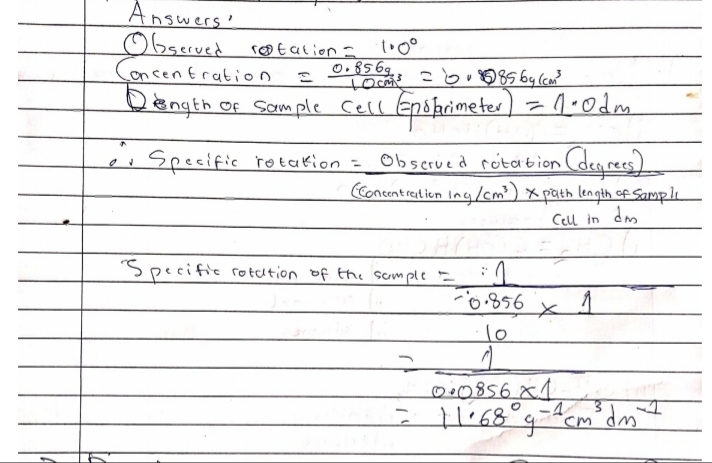 Answers'
Observed rotation = 1.0°
Concentration = 0.856g/10cm³ = 0.0856g/cm³
Length of sample cell (polarimeter) = 1.0dm
∴ Specific rotation = Observed rotation (degrees)
(Concentration in g/cm³) × path length of Sample
Cell in dm
Specific rotation of the sample = 1
0.856 × 1
10
= 1
0.0856 × 1
= +1.68° g⁻¹cm³dm⁻¹